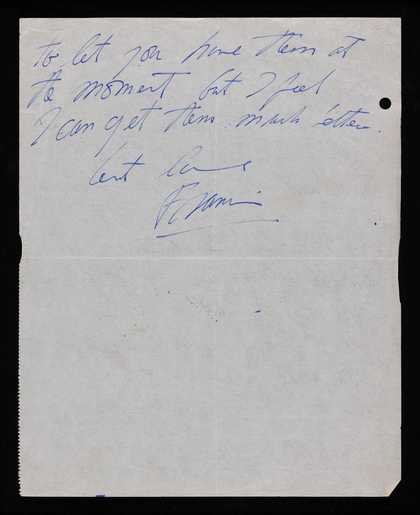 to let you have them at
the moment but I feel
I can get them much better.
best love
Francis